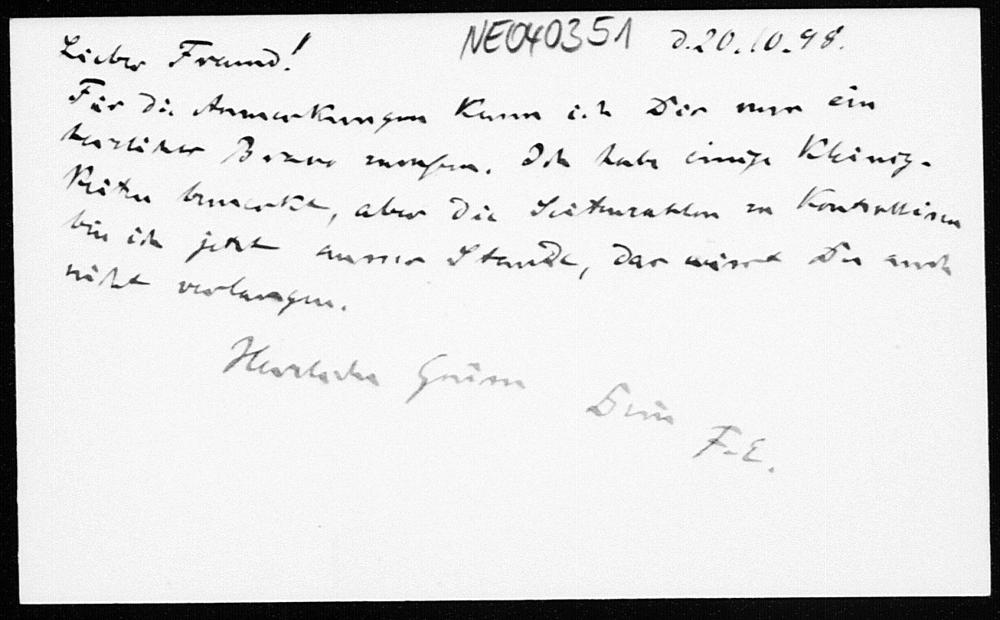 NE040351 d. 20.10.98.
Lieber Freund!
Für die Anmerkungen kann ich Dir nur ein
herzliches Bravo zurufen. Ich habe einige Kleinig-
keiten bemerkt, aber die Seitenzahlen zu Kontrollieren
bin ich jetzt ausser Stande, das wirst Du auch
nicht verlangen.
Herzliche Grüsse Dein
F.E.